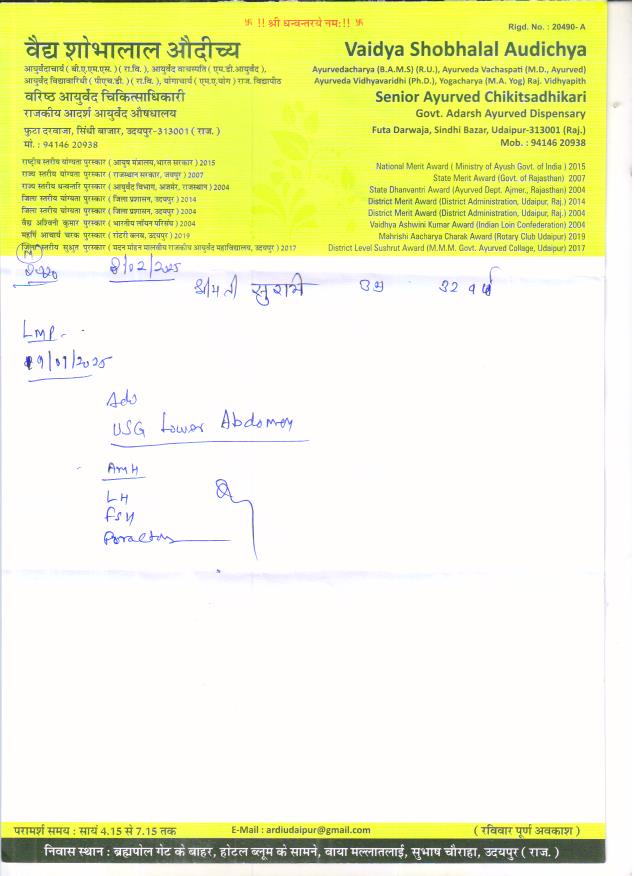 卐 !! श्री धन्वन्तरये नमः!! 卐
Rigd. No. : 20490- A
वैद्य शोभालाल औदीच्य
आयुर्वेदाचार्य ( बी.ए.एम.एस. ) ( रा.वि. ), आयुर्वेद वाचस्पति ( एम.डी.आयुर्वेद ),
आयुर्वेद विद्यावारिधी ( पीएच.डी. ) ( रा.वि. ), योगाचार्य ( एम.ए.योग ) राज. विद्यापीठ
वरिष्ठ आयुर्वेद चिकित्साधिकारी
राजकीय आदर्श आयुर्वेद औषधालय
फुटा दरवाजा, सिंधी बाजार, उदयपुर-313001 ( राज. )
मो. : 94146 20938
Vaidya Shobhalal Audichya
Ayurvedacharya (B.A.M.S) (R.U.), Ayurveda Vachaspati (M.D., Ayurved)
Ayurveda Vidhyavaridhi (Ph.D.), Yogacharya (M.A. Yog) Raj. Vidhyapith
Senior Ayurved Chikitsadhikari
Govt. Adarsh Ayurved Dispensary
Futa Darwaja, Sindhi Bazar, Udaipur-313001 (Raj.)
Mob. : 94146 20938
राष्ट्रीय स्तरीय योग्यता पुरस्कार ( आयुष मंत्रालय, भारत सरकार ) 2015
राज्य स्तरीय योग्यता पुरस्कार ( राजस्थान सरकार, जयपुर ) 2007
राज्य स्तरीय धन्वन्तरि पुरस्कार ( आयुर्वेद विभाग, अजमेर, राजस्थान ) 2004
जिला स्तरीय योग्यता पुरस्कार ( जिला प्रशासन, उदयपुर ) 2014
जिला स्तरीय योग्यता पुरस्कार ( जिला प्रशासन, उदयपुर ) 2004
वैद्य अश्विनी कुमार पुरस्कार ( भारतीय लॉयन परिसंघ ) 2004
महर्षि आचार्य चरक पुरस्कार ( रोटरी क्लब, उदयपुर ) 2019
जिला स्तरीय सुश्रुत पुरस्कार ( मदन मोहन मालवीय राजकीय आयुर्वेद महाविद्यालय, उदयपुर ) 2017
National Merit Award ( Ministry of Ayush Govt. of India ) 2015
State Merit Award (Govt. of Rajasthan) 2007
State Dhanvantri Award (Ayurved Dept. Ajmer., Rajasthan) 2004
District Merit Award (District Administration, Udaipur, Raj.) 2014
District Merit Award (District Administration, Udaipur, Raj.) 2004
Vaidhya Ashwini Kumar Award (Indian Loin Confederation) 2004
Mahrishi Aacharya Charak Award (Rotary Club Udaipur) 2019
District Level Sushrut Award (M.M.M. Govt. Ayurved Collage, Udaipur) 2017
8/02/2025
श्रीमती सुरभि उम्र 32 वर्ष
LMP -
19/01/2025
Adv
USG Lower Abdomen
AMH
LH
FSH
Prolactin
परामर्श समय : सायं 4.15 से 7.15 तक
E-Mail : ardiudaipur@gmail.com
( रविवार पूर्ण अवकाश )
निवास स्थान : ब्रह्मपोल गेट के बाहर, होटल ब्लूम के सामने, वाया मल्लातलाई, सुभाष चौराहा, उदयपुर ( राज. )